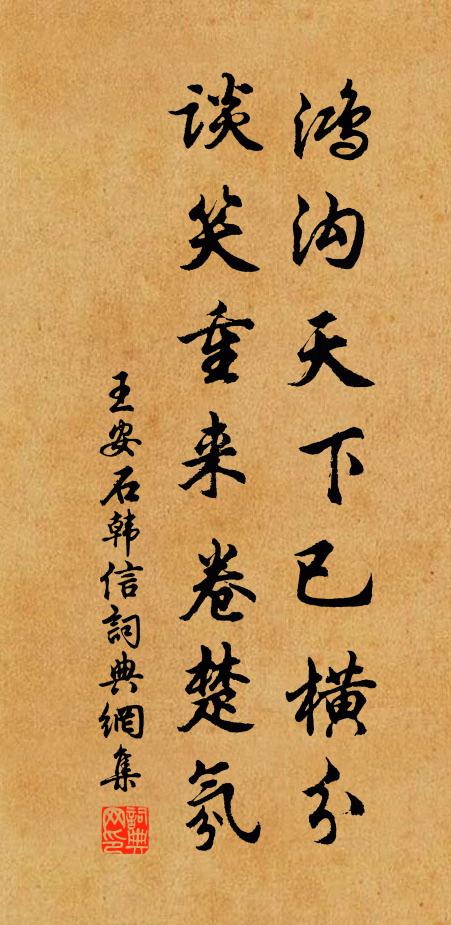 鸿沟天下已横分
谈笑重来卷楚氛
王安石韩信詞典網集
詞典网印